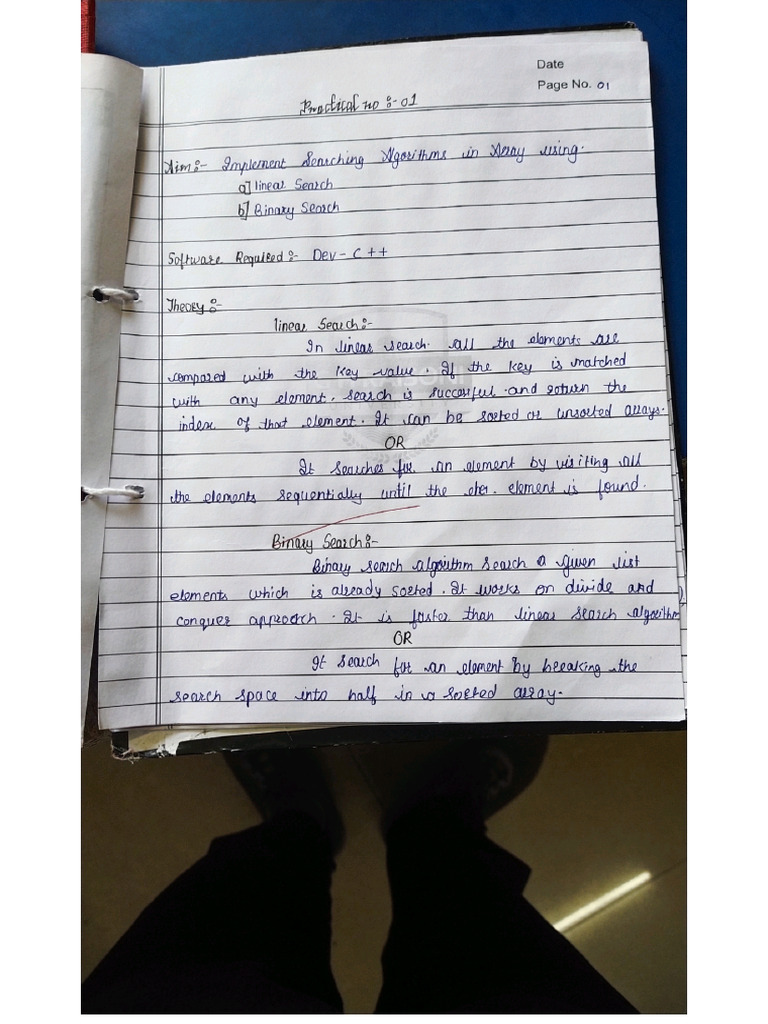 Date
Page No. 01
Practical no :- 01
Aim :- Implement Searching Algorithms in Array using.
a] linear Search
b] Binary Search
Software Required :- Dev - C ++
Theory :-
linear Search :-
In linear search all the elements are
compared with the key value. If the key is matched
with any element, search is successful and return the
index of that element. It can be sorted or unsorted arrays.
OR
It searches for an element by visiting all
the elements sequentially until the element is found.
Binary Search :-
Binary search algorithm search a given list
elements which is already sorted. It works on divide and
conquer approach. It is faster than linear search algorithm
OR
It search for an element by breaking the
search space into half in a sorted array.